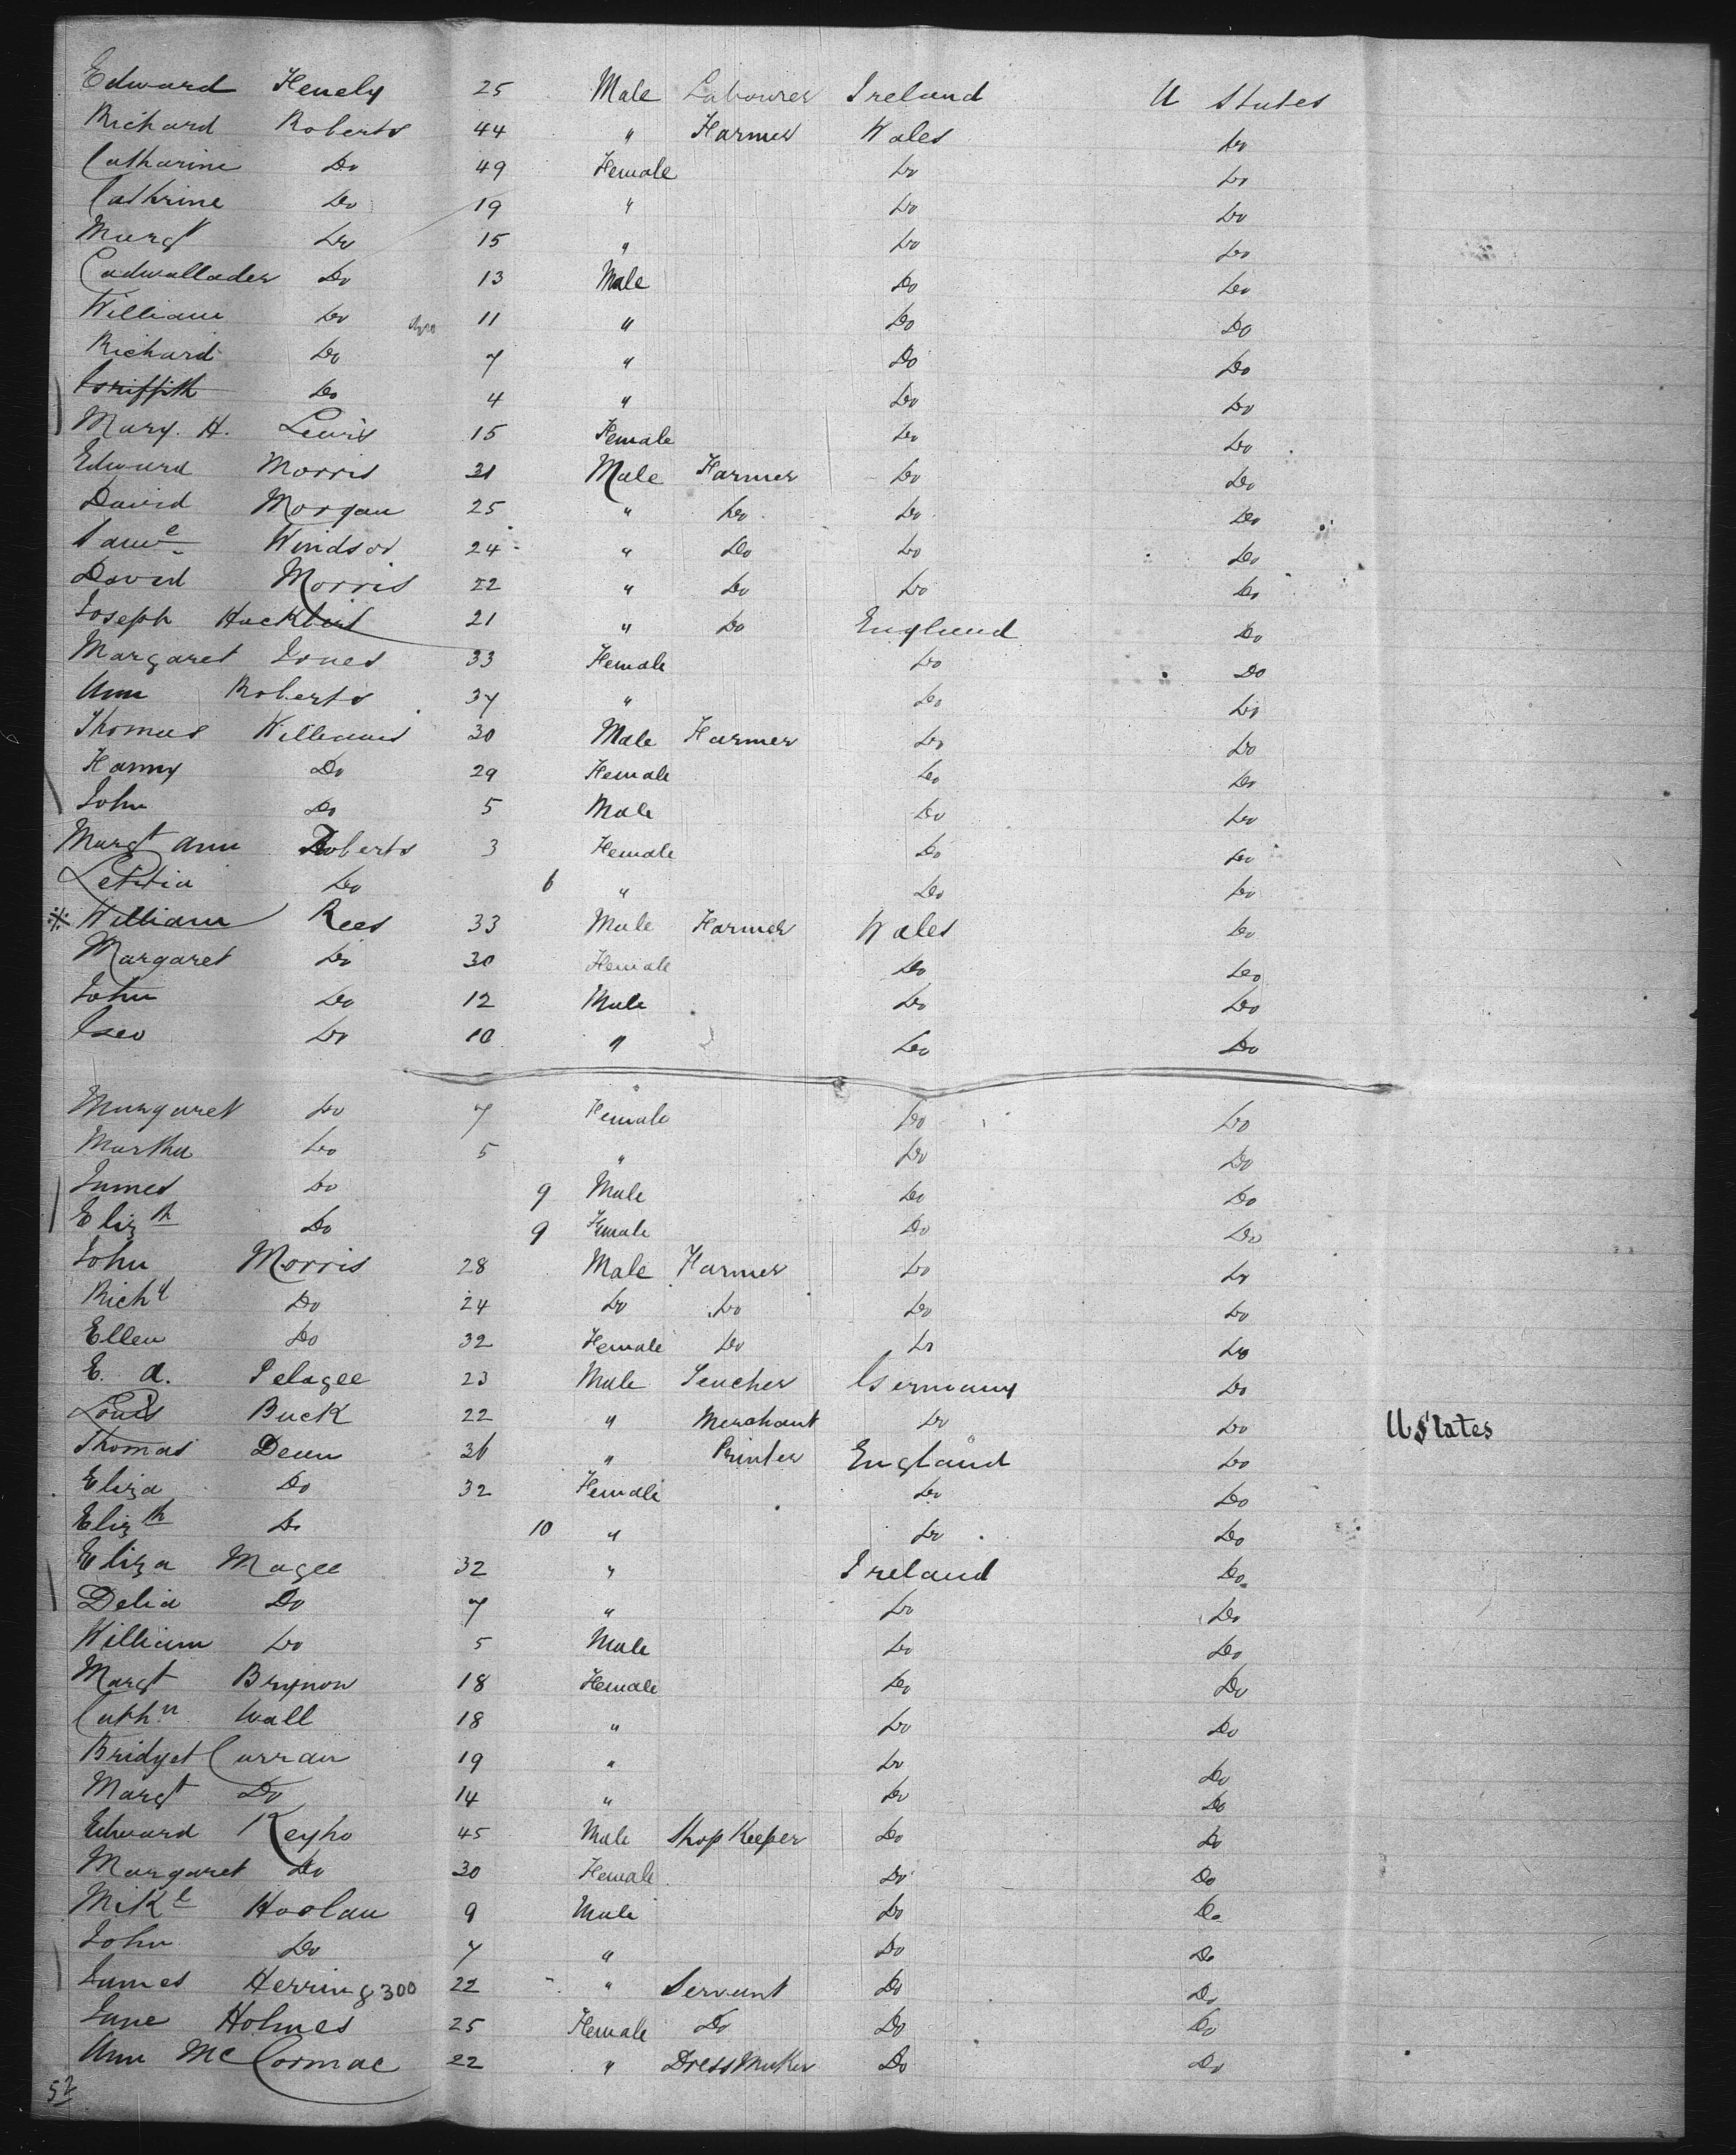 Edward Henely 25 Male Labourer Ireland U States
Richard Roberts 44 " Farmer Wales Do
Catharine Do 49 Female Do Do
Cathrine Do 19 " Do Do
Margt Do 15 " Do Do
Cadwallader Do 13 Male Do Do
William Do 11 " Do Do
Richard Do 7 " Do Do
Griffith Do 4 " Do Do
Mary. H. Lewis 15 Female Do Do
Edward Morris 31 Male Farmer Do Do
David Morgan 25 " Do Do Do
Saml Windsor 24 " Do Do Do
David Morris 22 " Do Do Do
Joseph 21 " Do England Do
Margaret Jones 33 Female Do Do
Ann Roberts 37 " Do Do
Thomas Williams 30 Male Farmer Do Do
Fanny Do 29 Female Do Do
John Do 5 Male Do Do
Margt Ann Roberts 3 Female Do Do
Letitia Do 6 " Do Do
※ William Rees 33 Male Farmer Wales Do
Margaret Do 30 Female Do Do
John Do 12 Male Do Do
Geo Do 10 " Do Do
Margaret Do 7 Female Do Do
Martha Do 5 " Do Do
James Do 9 Male Do Do
Elizth Do 9 Female Do Do
John Morris 28 Male Farmer Do Do
Richd Do 24 Do Do Do Do
Ellen Do 32 Female Do Do Do
E. A. Pelagee 23 Male Teacher Germany Do
Louis Buck 22 " Merchant Do Do U States
Thomas Deun 36 " Printer England Do
Eliza Do 32 Female Do Do
Elizth Do 10 " Do Do
Eliza Magee 32 " Ireland Do
Delia Do 7 " Do Do
William Do 5 Male Do Do
Margt Brynon 18 Female Do Do
Cathn Wall 18 " Do Do
Bridget Curran 19 " Do Do
Margt Do 14 " Do Do
Edward Keyho 45 Male Shop Keeper Do Do
Margaret Do 30 Female Do Do
Mikl Hoolan 9 Male Do Do
John Do 7 " Do Do
James Herring 300 22 " Servant Do Do
Jane Holmes 25 Female Do Do Do
Ann McCormac 22 " Dress Maker Do Do
52